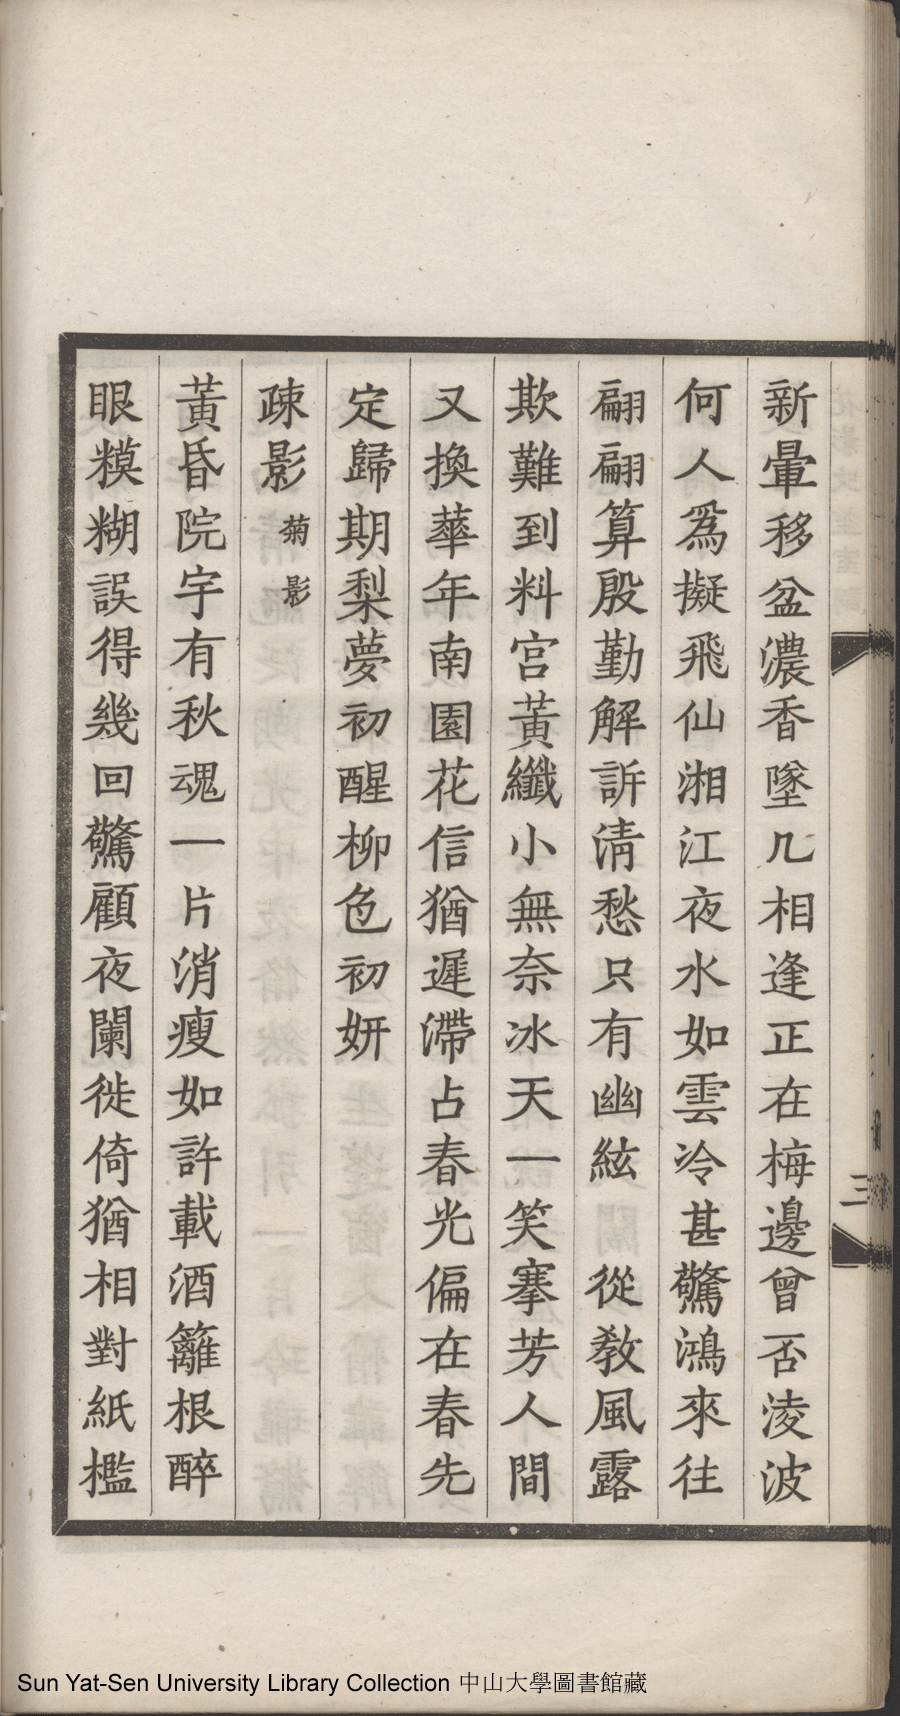 新暈移盆濃香墜几相逢正在梅邊曾否淩波
何人爲擬飛仙湘江夜水如雲冷甚驚鴻來往
翩翩算殷勤解訴淸愁只有幽絃　從教風露
欺難到料宮黃纖小無奈冰天一笑搴芳人間
又換華年南園花信猶遲滯占春光偏在春先
定歸期梨夢初醒柳色初妍
疎影 菊影
黃昏院宇有秋魂一片消瘦如許載酒籬根醉
眼糢糊誤得幾回驚顧夜闌徙倚猶相對紙檻
三
Sun Yat-Sen University Library Collection 中山大學圖書館藏